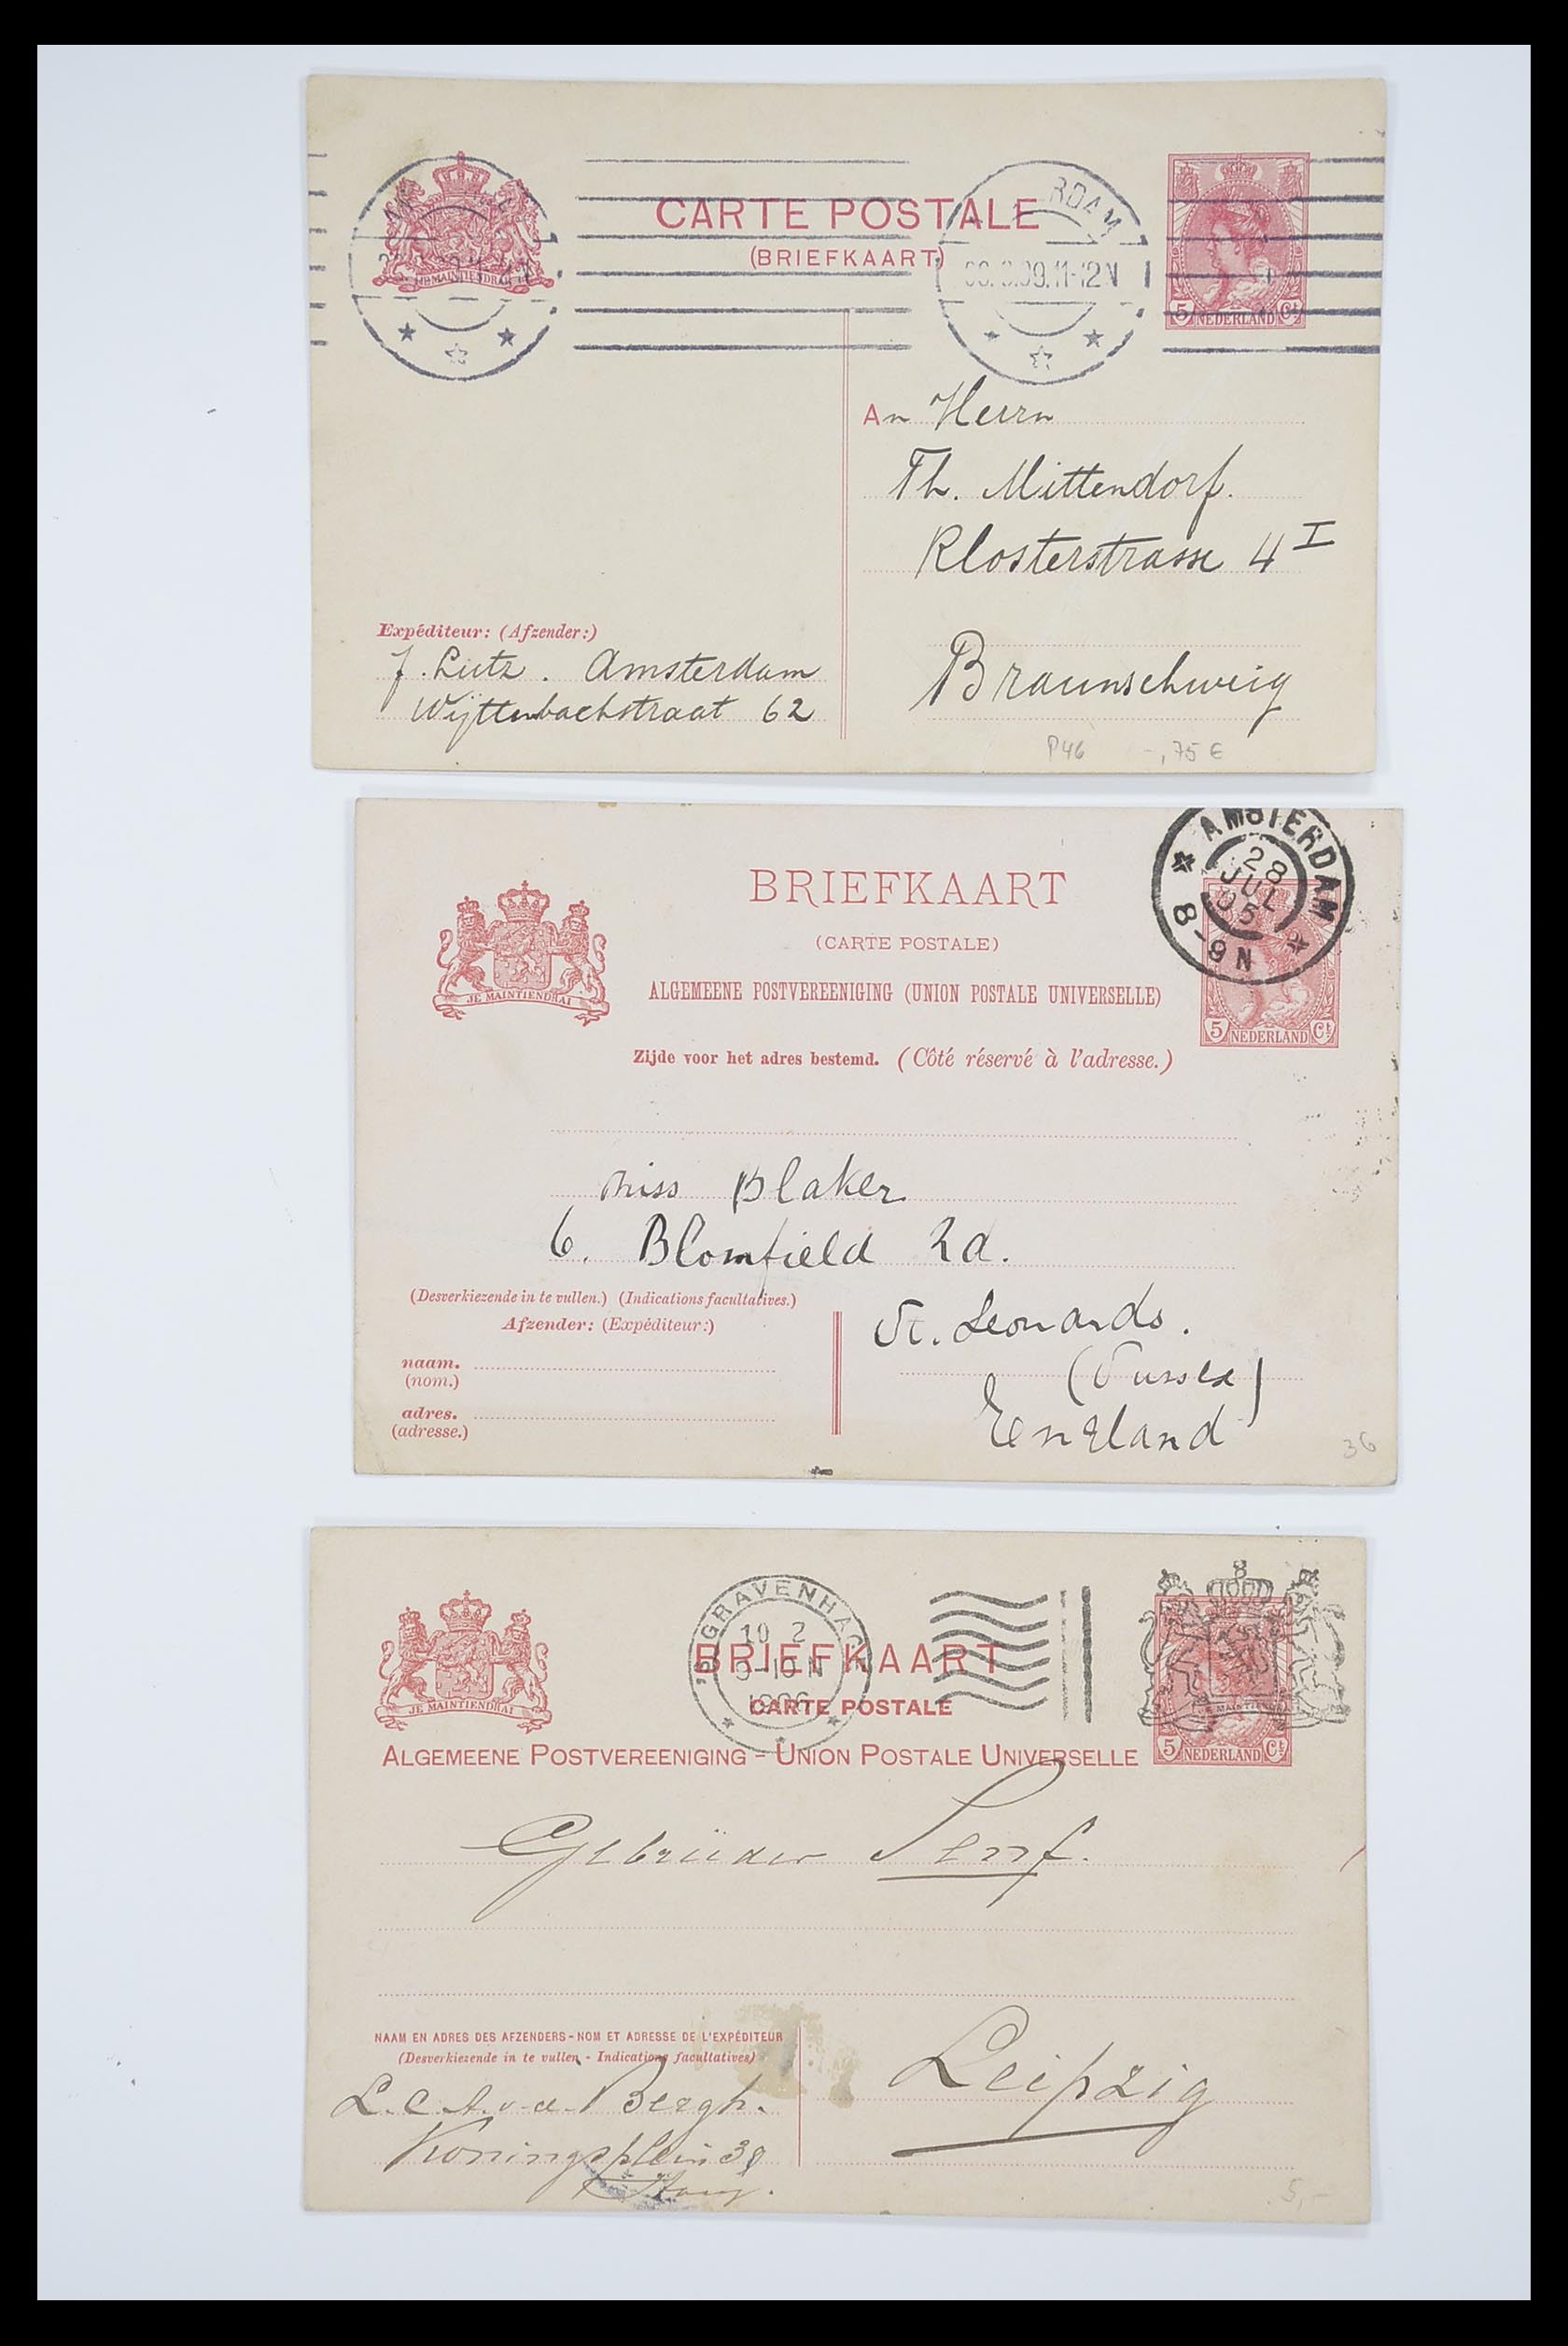 CARTE POSTALE
(BRIEFKAART)
RDAM
.09.11-12 N
JE MAINTIENDRAI
5 NEDERLAND Ct
An Herrn
Th. Mittendorf.
Klosterstrasse 4 I
Braunschweig
Expéditeur: (Afzender:)
J. Lutz. Amsterdam
Wijttenbachstraat 62
P46 -,75 €
AMSTERDAM
28
JUL
05
8-9N
BRIEFKAART
(CARTE POSTALE)
ALGEMEENE POSTVEREENIGING (UNION POSTALE UNIVERSELLE)
Zijde voor het adres bestemd. (Côté réservé à l'adresse.)
JE MAINTIENDRAI
5 NEDERLAND Ct
Miss Blaker
6. Blomfield Rd.
St. Leonards.
(Sussex)
England
(Desverkiezende in te vullen.) (Indications facultatives.)
Afzender: (Expéditeur:)
naam.
(nom.)
adres.
(adresse.)
36
'S GRAVENHAGE
10 2
9-10 N
1906
BRIEFKAART
CARTE POSTALE
ALGEMEENE POSTVEREENIGING = UNION POSTALE UNIVERSELLE
JE MAINTIENDRAI
JE MAINTIENDRAI
5 NEDERLAND Ct
Gebrüder Senf.
Leipzig
NAAM EN ADRES DES AFZENDERS - NOM ET ADRESSE DE L'EXPÉDITEUR
(Desverkiezende in te vullen - Indications facultatives)
L.C.A. v.d. Bergh.
Koningsplein 39
Haag.
5,-